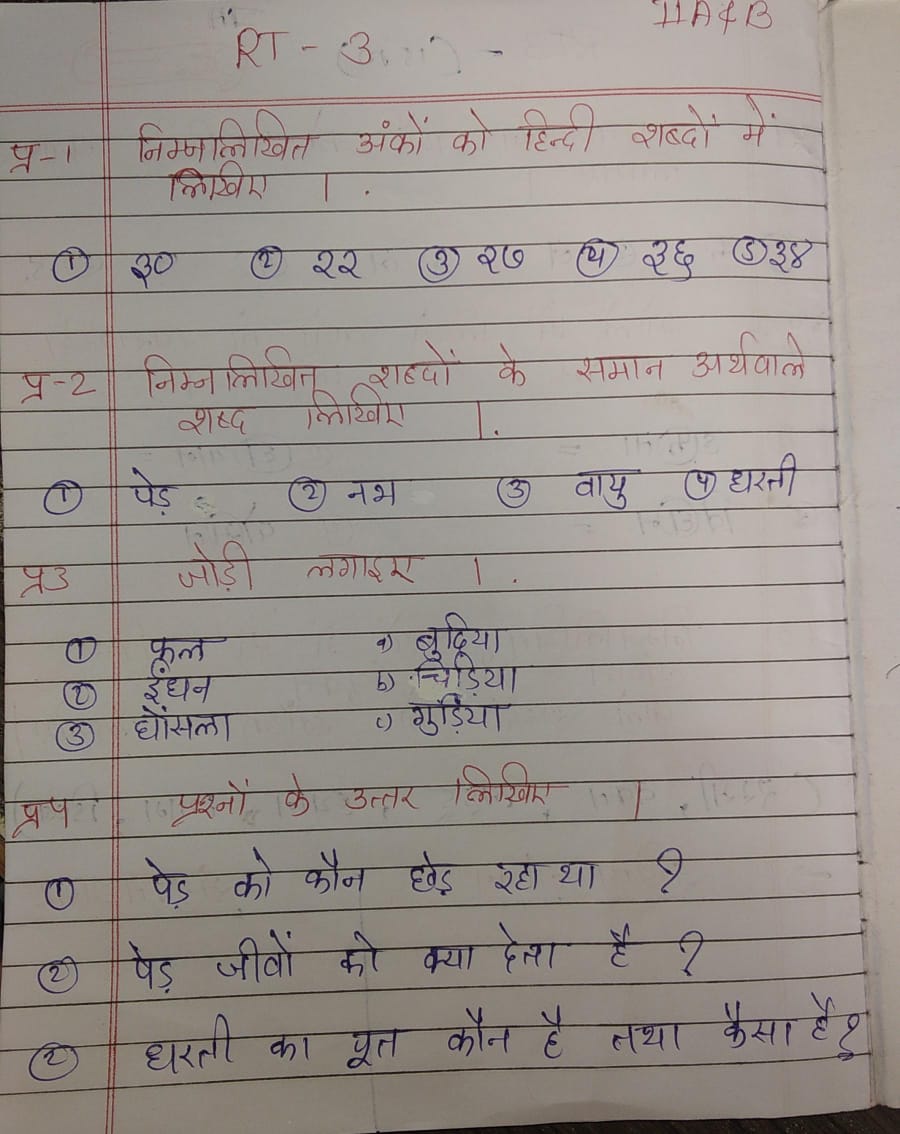 IIA&B
RT - ३
प्र-१ निम्नलिखित अंकों को हिन्दी शब्दों में
लिखिए ।
① ३० ② २२ ③ २७ ④ ३६ ⑤ ३४
प्र-2 निम्नलिखित शब्दों के समान अर्थवाले
शब्द लिखिए ।
① पेड़ ② नभ ③ वायु ④ धरती
प्र३ जोड़ी लगाइए ।
① फूल a) बुढ़िया
② ईंधन b) चिड़िया
③ घोंसला c) गुड़िया
प्र४ प्रश्नों के उत्तर लिखिए ।
① पेड़ को कौन छेड़ रहा था ?
② पेड़ जीवों को क्या देता है ?
② धरती का पूत कौन है तथा कैसा है?